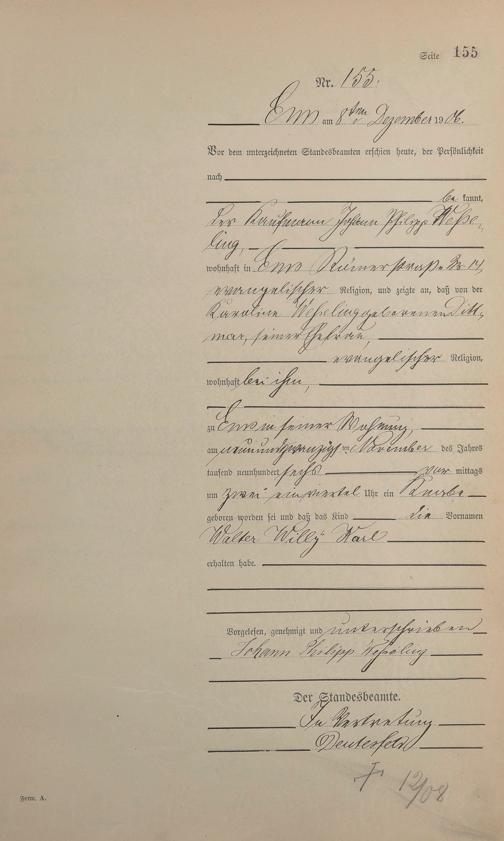 Seite 155
Nr. 155.
Ems am 8ten Dezember 1906.
Vor dem unterzeichneten Standesbeamten erschien heute, der Persönlichkeit
nach
be kannt,
der Kaufmann Johann Philipp Weße-
ling,
wohnhaft in Ems Römerstraße
evangelischer Religion, und zeigte an, daß von der
Karoline Weßeling geborenen Ditt-
mar, seiner Ehefrau,
evangelischer Religion,
wohnhaft bei ihm,
zu Ems in seiner Wohnung,
am neunundzwanzigsten November des Jahres
tausend neunhundert sechs vor mittags
um zwei einviertel Uhr ein Knabe
geboren worden sei und daß das Kind die Vornamen
Walter Willy Karl
erhalten habe.
Vorgelesen, genehmigt und unterschrieben
Johann Philipp Weßeling
Der Standesbeamte.
In Vertretung
12/08
Form. A.